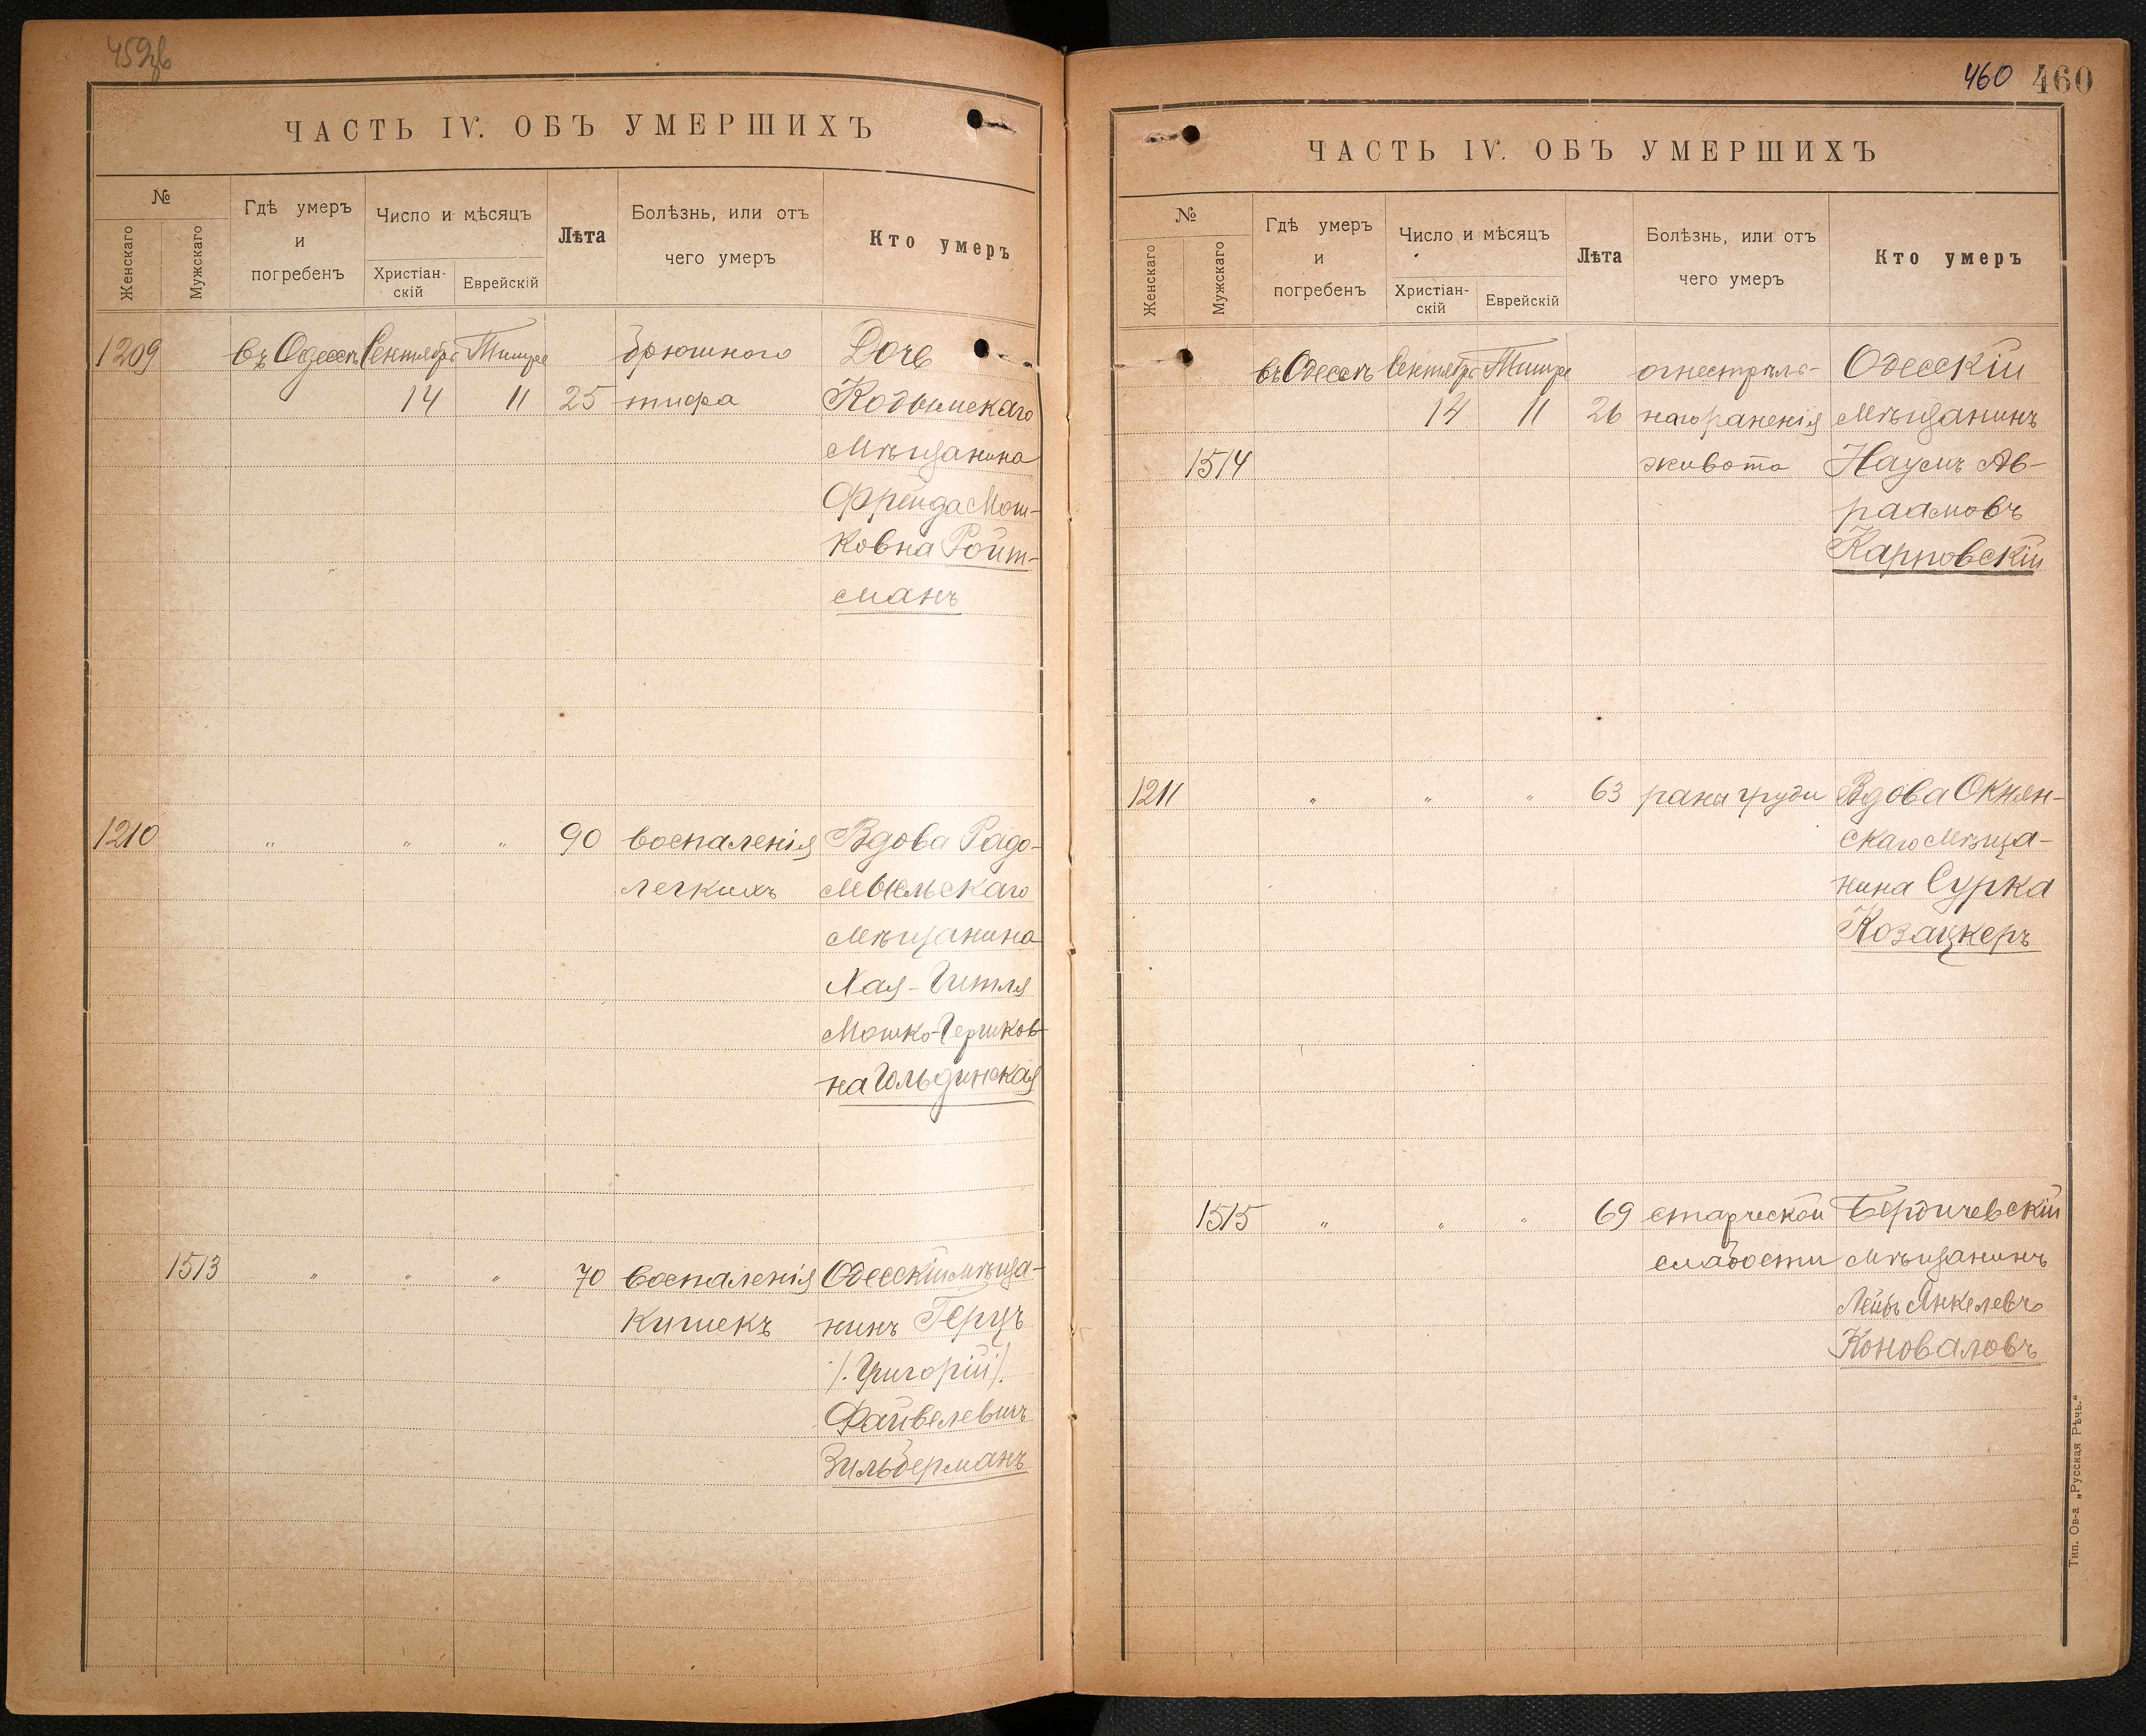 459об
ЧАСТЬ IV. ОБЪ УМЕРШИХЪ
№
Женскаго
Мужскаго
Гдѣ умеръ
и
погребенъ
Число и мѣсяцъ
Христіан-
скій
Еврейскій
Лѣта
Болѣзнь, или отъ
чего умеръ
Кто умеръ
1209 въ Одессѣ Сентября Тишре брюшного Дочь
14 11 25 тифа Кодымскаго
Мѣщанина
Фрейда Мош-
ковна Ройт-
манъ
1210 " " " 90 воспаленія Вдова Радо-
легкихъ мысльскаго
Мѣщанина
Хая-Гитля
Мошко-Гершков-
на Гольдинская
1513 " " " 70 воспаленія Одесскій мѣща-
кишекъ нинъ Герцъ
/.Григорій/.
Файвелевичъ
Зильберманъ
460 460
ЧАСТЬ IV. ОБЪ УМЕРШИХЪ
№
Женскаго
Мужскаго
Гдѣ умеръ
и
погребенъ
Число и мѣсяцъ
Христіан-
скій
Еврейскій
Лѣта
Болѣзнь, или отъ
чего умеръ
Кто умеръ
въ Одессѣ Сентября Тишре огнестрѣль- Одесскій
14 11 26 наго раненія Мѣщанинъ
1514 живота Наумъ Ав-
раамовъ
Карповскій
1211 " " " 63 раны груди Вдова Окнян-
скаго Мѣща-
нина Сурка
Козацкеръ
1515 " " " 69 старческой Бердичевскій
слабости Мѣщанинъ
Лейбъ Янкелевъ
Коноваловъ
Тип. Ов-а „Русская Рѣчь."